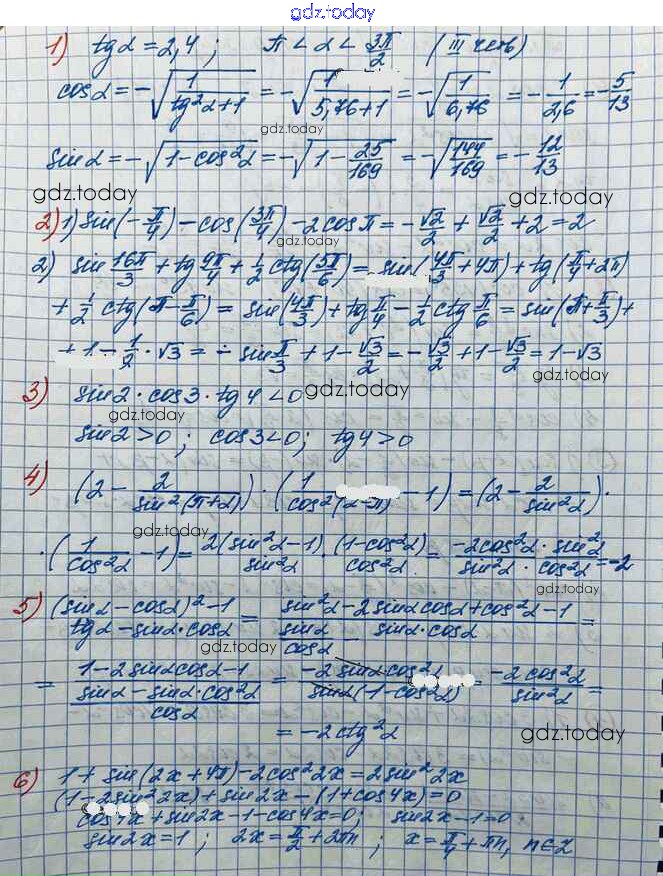 gdz.today
1) tgα = 2,4 ; π < α < 3π/2 (III четв)
cosα = -√(1/(tg²α+1)) = -√(1/(5,76+1)) = -√(1/6,76) = -1/2,6 = -5/13
gdz.today
sinα = -√(1-cos²α) = -√(1-25/169) = -√(144/169) = -12/13
gdz.today gdz.today
2) 1) sin(-π/4) - cos(3π/4) - 2cosπ = -√2/2 + √2/2 + 2 = 2
gdz.today
2) sin 16π/3 + tg 9π/4 + 1/2 ctg(5π/6) = sin(4π/3 + 4π) + tg(π/4 + 2π)
+ 1/2 ctg(π - π/6) = sin(4π/3) + tg π/4 - 1/2 ctg π/6 = sin(π + π/3) +
+ 1 - 1/2 · √3 = - sin π/3 + 1 - √3/2 = -√3/2 + 1 - √3/2 = 1 - √3
gdz.today
3) sin2 · cos3 · tg4 < 0
gdz.today
gdz.today
sin2 > 0 ; cos3 < 0 ; tg4 > 0
4) (2 - 2/sin²(π+α)) · (1/cos²(α-π) - 1) = (2 - 2/sin²α) ·
gdz.today
· (1/cos²α - 1) = 2(sin²α-1)/sin²α · (1-cos²α)/cos²α = -2cos²α · sin²α/sin²α · cos²α = -2
gdz.today
5) (sinα-cosα)²-1/tgα-sinα·cosα = sin²α-2sinαcosα+cos²α-1/sinα/cosα - sinα·cosα =
= 1-2sinαcosα-1/sinα-sinα·cos²α/cosα = -2sinαcos²α/sinα(1-cos²α) = -2cos²α/sin²α =
gdz.today
= -2ctg²α
gdz.today
6) 1 + sin(2x + 4π) - 2cos²2x = 2sin²2x
(1-2sin²2x) + sin2x - (1+cos4x) = 0
cos4x + sin2x - 1 - cos4x = 0; sin2x - 1 = 0
sin2x = 1 ; 2x = π/2 + 2πn ; x = π/4 + πn, n∈Z